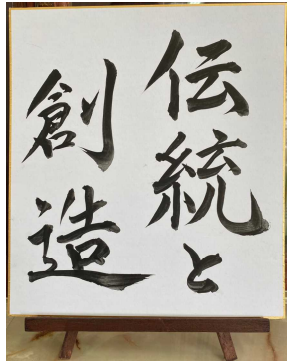 伝統と
創造